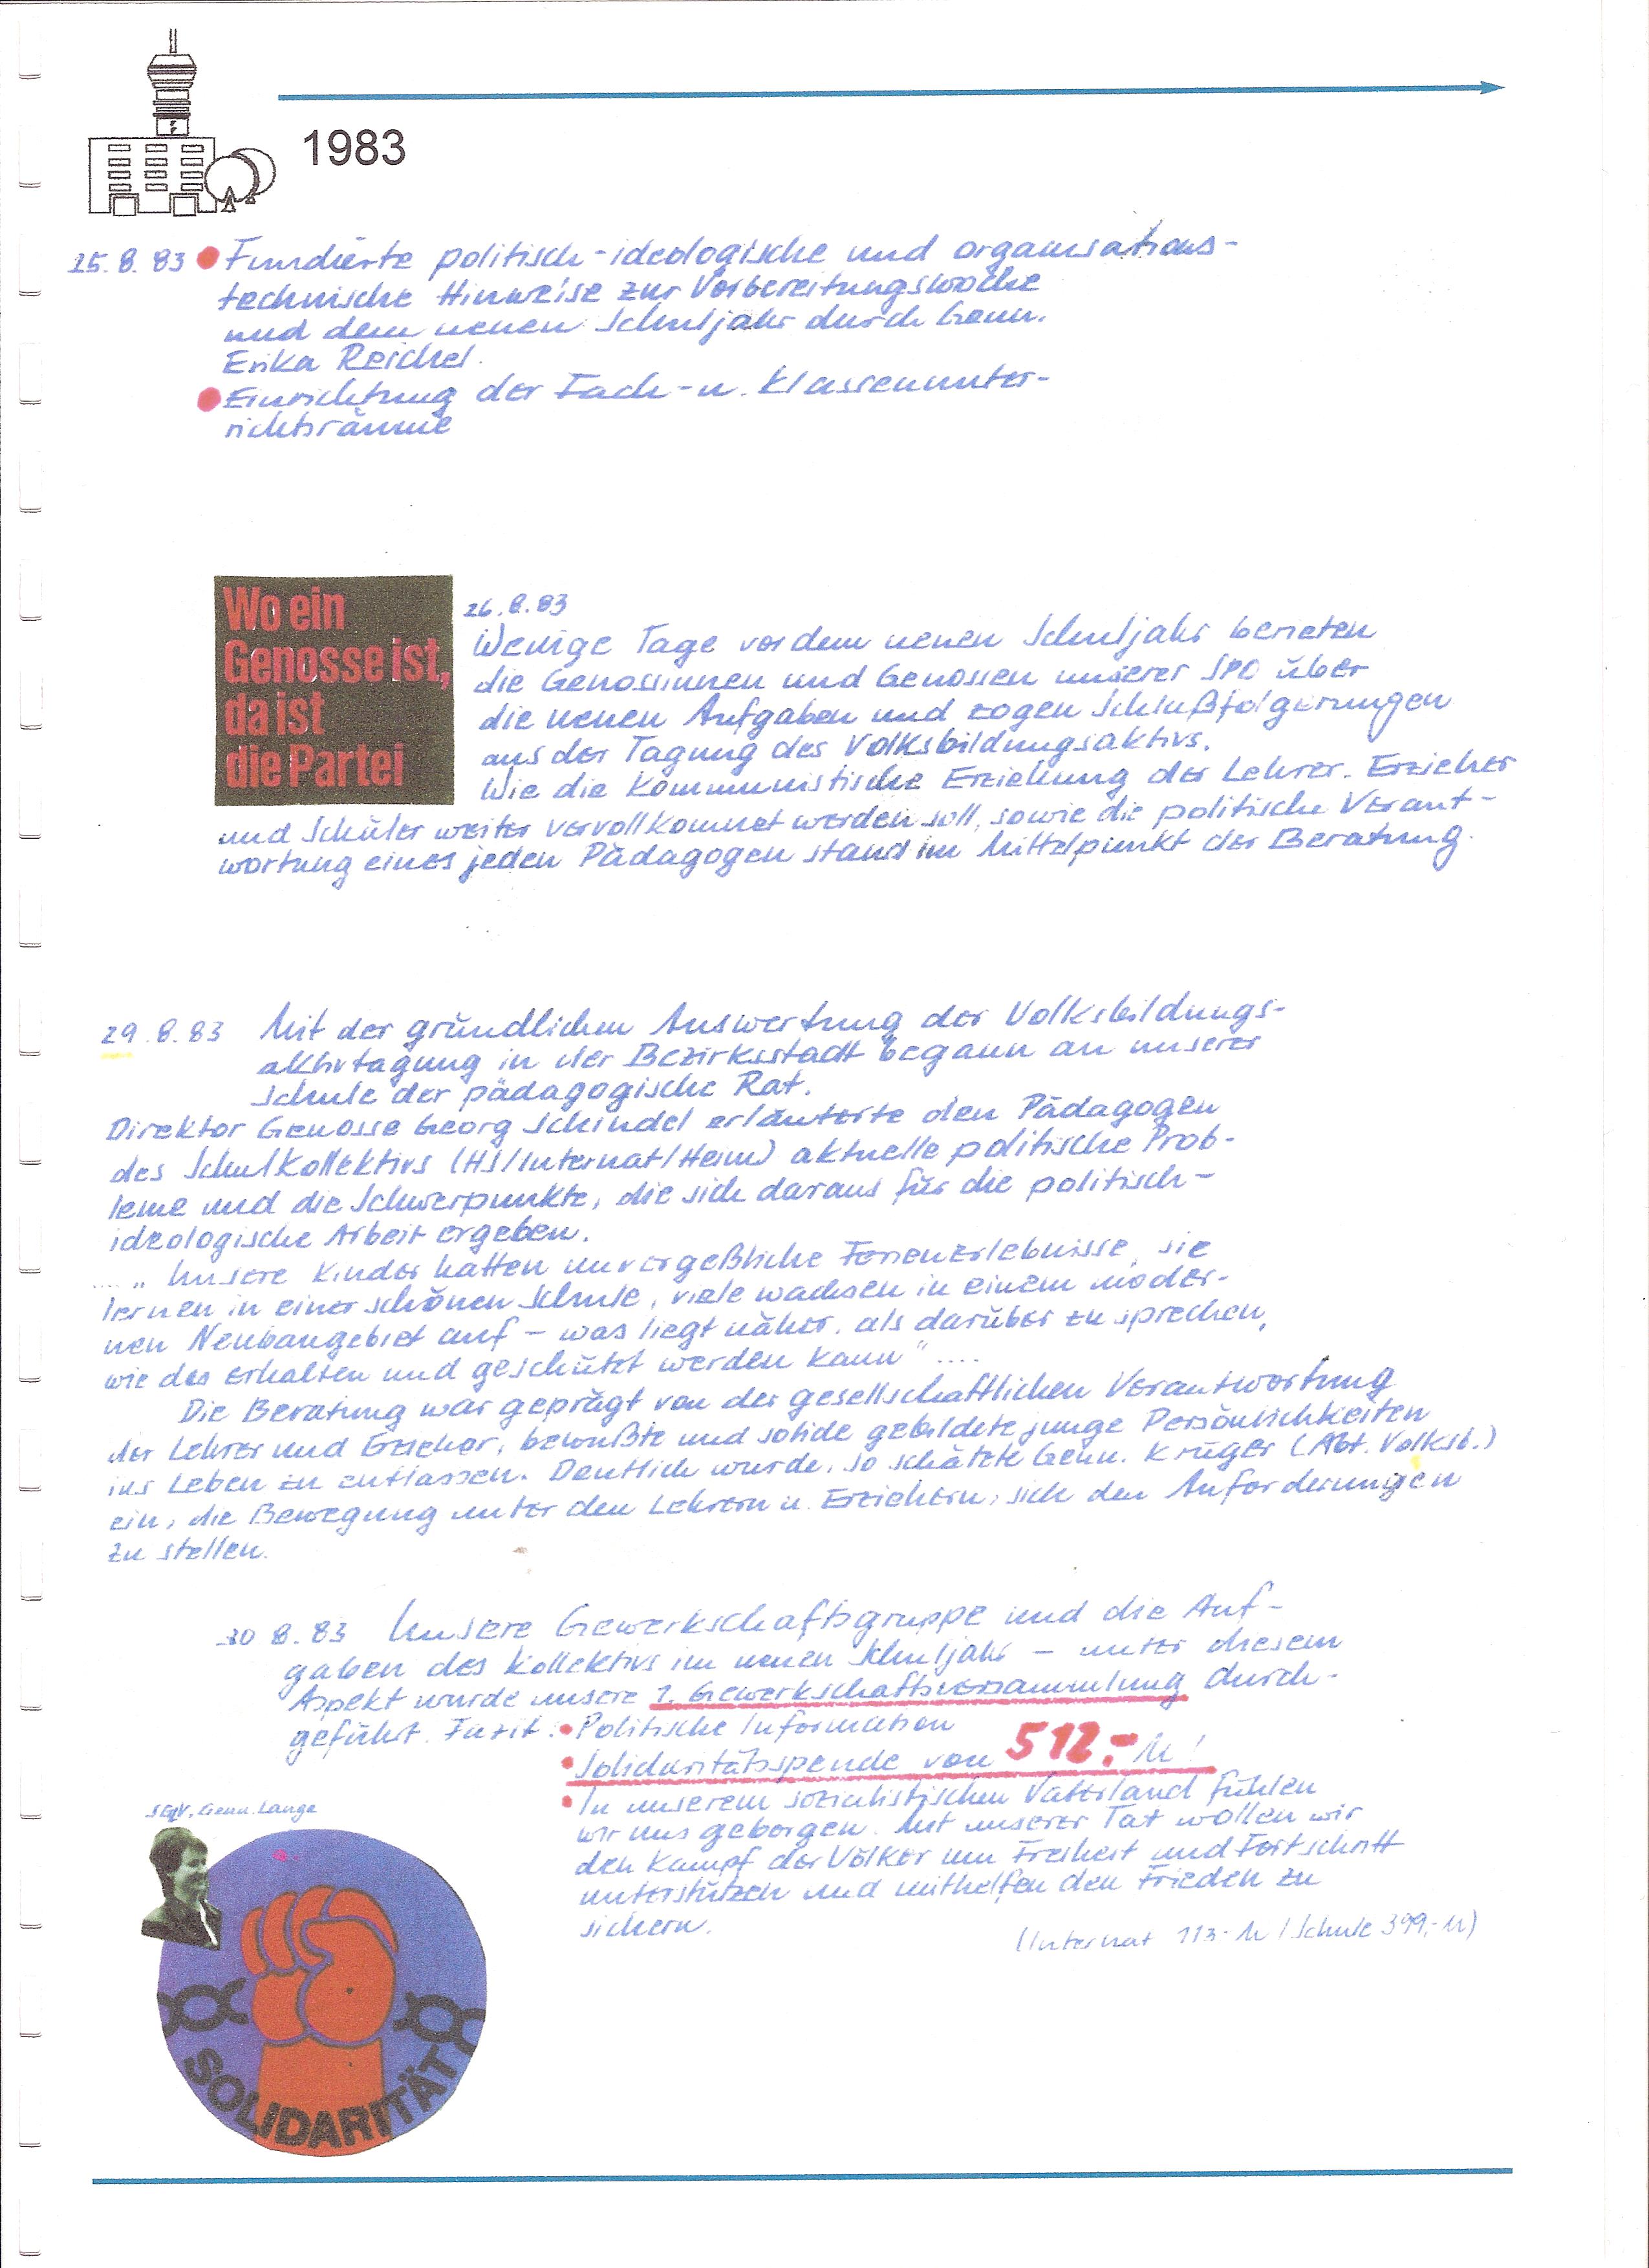 1983
25.8.83 • Fundierte politisch-ideologische und organisations-
technische Hinweise zur Vorbereitungswoche
und dem neuen Schuljahr durch Genn.
Erika Reichel.
• Einrichtung der Fach- u. Klassenunter-
richtsräume
Wo ein
Genosse ist,
da ist
die Partei
26.8.83
Wenige Tage vor dem neuen Schuljahr berieten
die Genossinnen und Genossen unserer SPO über
die neuen Aufgaben und zogen Schlußfolgerungen
aus der Tagung des Volksbildungsaktivs.
Wie die Kommunistische Erziehung der Lehrer, Erzieher
und Schüler weiter vervollkommnet werden soll, sowie die politische Verant-
wortung eines jeden Pädagogen stand im Mittelpunkt der Beratung.
29.8.83 Mit der gründlichen Auswertung der Volksbildungs-
aktivtagung in der Bezirksstadt begann an unserer
Schule der pädagogische Rat.
Direktor Genosse Georg Schindel erläuterte den Pädagogen
des Schulkollektivs (HS/Internat/Heim) aktuelle politische Prob-
leme und die Schwerpunkte, die sich daraus für die politisch-
ideologische Arbeit ergeben.
.... „Unsere Kinder hatten unvergeßliche Ferienerlebnisse, sie
lernen in einer schönen Schule, viele wachsen in einem moder-
nen Neubaugebiet auf – was liegt näher, als darüber zu sprechen,
wie das erhalten und geschützt werden kann" ....
Die Beratung war geprägt von der gesellschaftlichen Verantwortung
der Lehrer und Erzieher, bewußte und solide gebildete junge Persönlichkeiten
ins Leben zu entlassen. Deutlich wurde, so schätzte Genn. Krüger (Abt. Volksb.)
ein, die Bewegung unter den Lehrern u. Erziehern, sich den Anforderungen
zu stellen.
30.8.83 Unsere Gewerkschaftsgruppe und die Auf-
gaben des Kollektivs im neuen Schuljahr – unter diesem
Aspekt wurde unsere 1. Gewerkschaftsversammlung durch-
geführt. Fazit: • Politische Information
• Solidaritätsspende von 512,- M!
• In unserem sozialistischen Vaterland fühlen
wir uns geborgen. Mit unserer Tat wollen wir
den Kampf der Völker um Freiheit und Fortschritt
unterstützen und mithelfen den Frieden zu
sichern.
(Internat 113,- M / Schule 399,- M)
Genn. Lange
SOLIDARITÄT